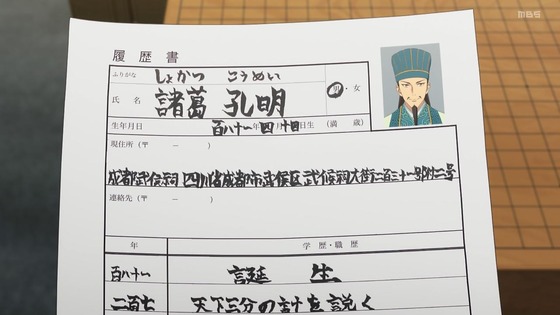 MBS
履歴書
ふりがな しょかつ こうめい
氏名 諸葛 孔明 男・女
生年月日 百八十一年 四月十日生 (満 歳)
現住所 (〒 － )
成都武侯祠 四川省成都市武侯区武侯祠大街二百三十一号附二号
連絡先 (〒 － )
年 学歴・職歴
百八十一 誕 生
二百七 天下三分の計を説く